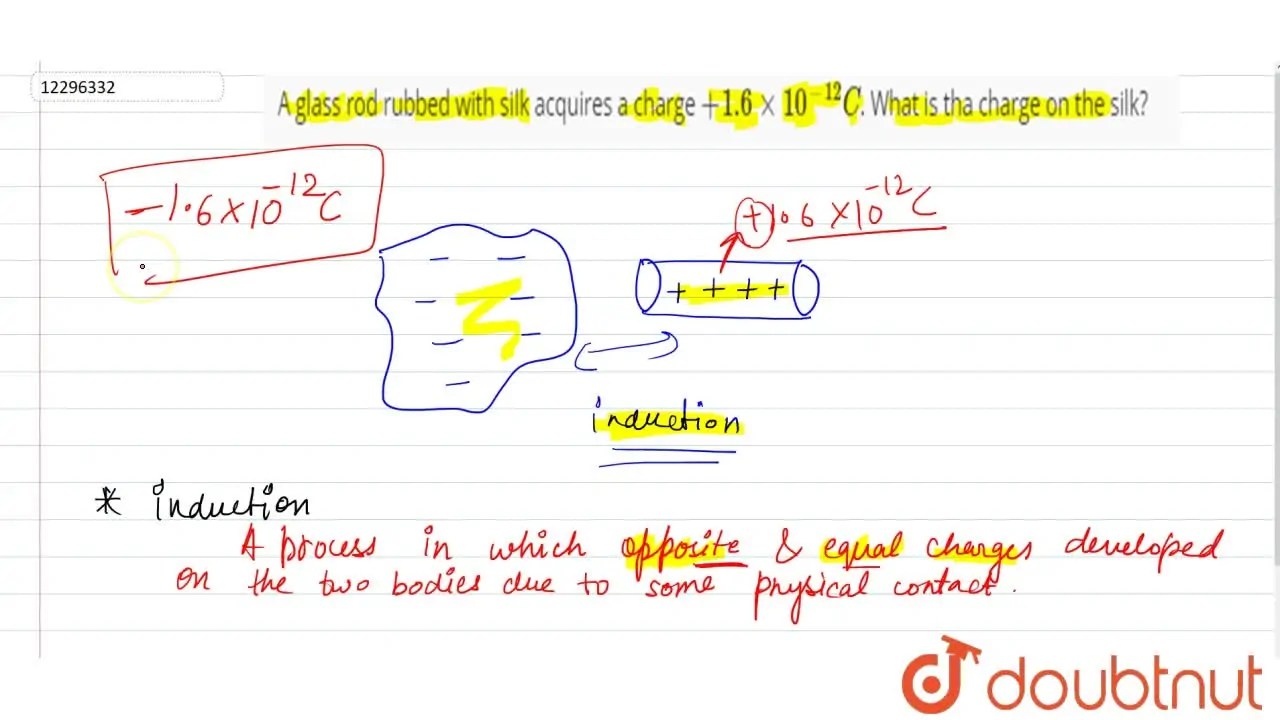 12296332
A glass rod rubbed with silk acquires a charge +1.6 × 10⁻¹²C. What is tha charge on the silk?
-1.6×10⁻¹²C
+1.6×10⁻¹²C
- -
+ + + +
- -
- -
-
induction
* induction
A process in which opposite & equal charges developed
on the two bodies due to some physical contact.
doubtnut